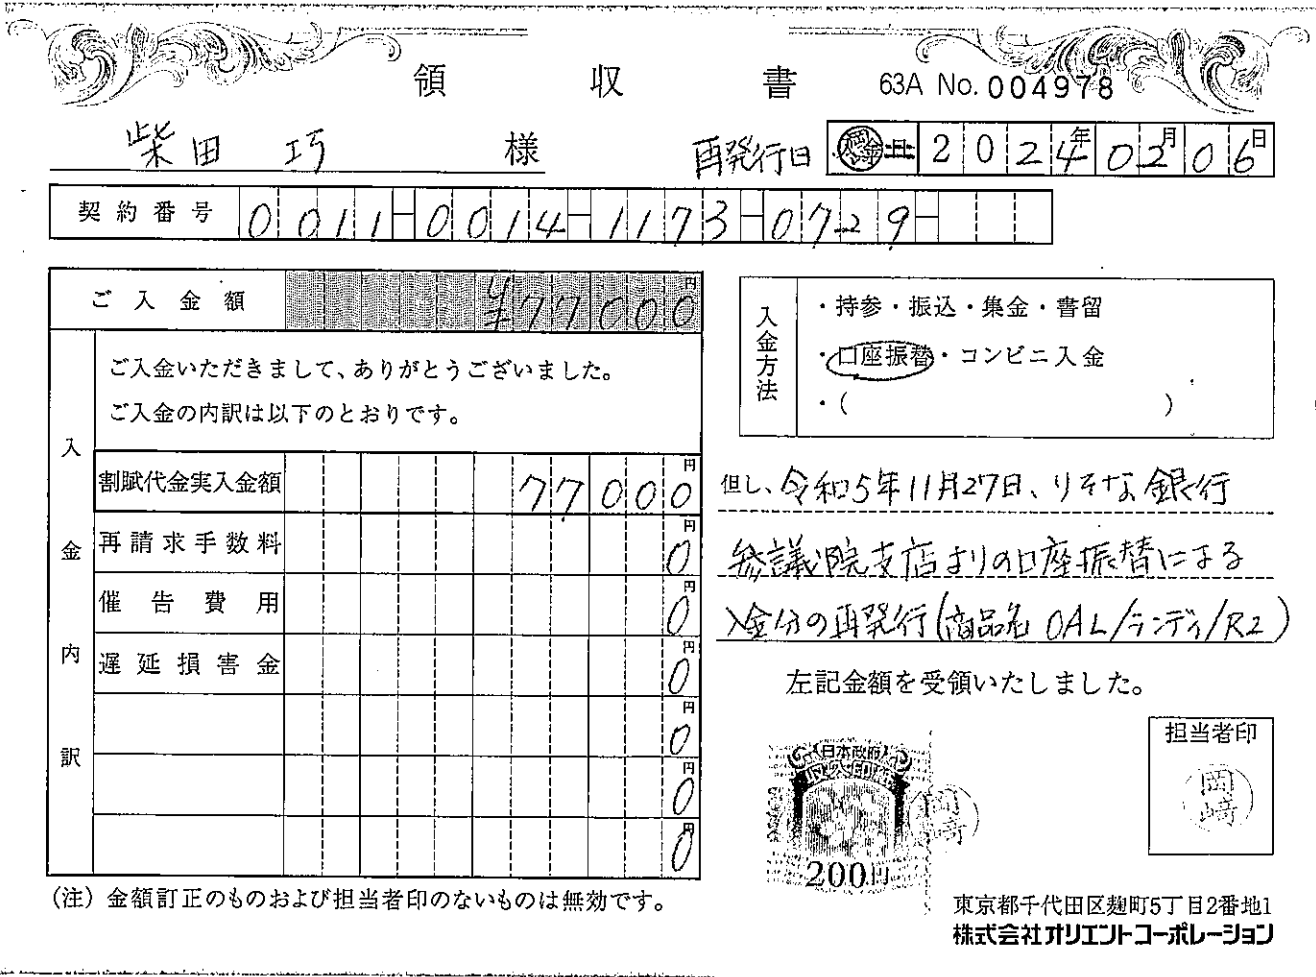 領収書 63A No. 004978
柴田 巧 様
再発行日 2024年02月06日
契約番号 0011-0014-1173-0729-
ご入金額 ¥77000円
入金内訳
ご入金いただきまして、ありがとうございました。
ご入金の内訳は以下のとおりです。
割賦代金実入金額 77000円
再請求手数料 0円
催告費用 0円
遅延損害金 0円
0円
0円
0円
(注) 金額訂正のものおよび担当者印のないものは無効です。
入金方法
・持参・振込・集金・書留
・口座振替・コンビニ入金
・( )
但し、令和5年11月27日、りそな銀行
参議院支店よりの口座振替による
入金分の再発行(商品名 OAL/ランディ/R2)
左記金額を受領いたしました。
日本政府
200円
岡崎
担当者印
岡崎
東京都千代田区麹町5丁目2番地1
株式会社オリエントコーポレーション